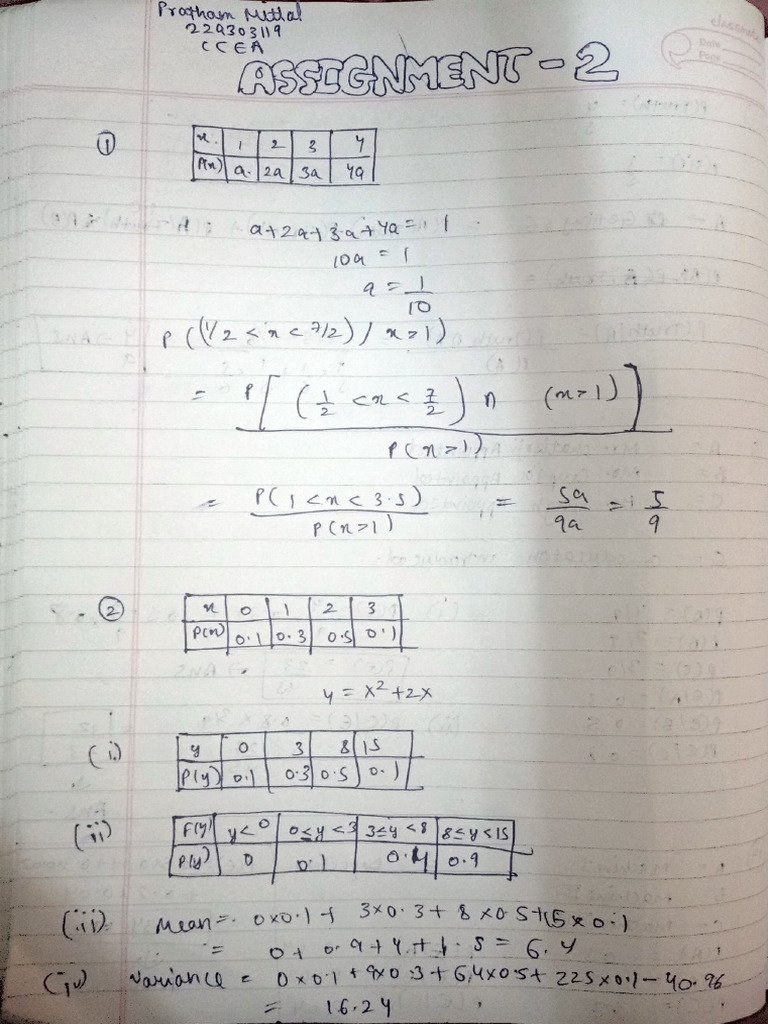 Pratham Mittal
229303119
CCEA
classmate
Date
Page
ASSIGNMENT - 2
① x 1 2 3 4
P(x) a. 2a 3a 4a
a + 2a + 3a + 4a = 1
10a = 1
a = 1/10
P((1/2 < x < 7/2) / x > 1)
= P[(1/2 < x < 7/2) ∩ (x > 1)] / P(x > 1)
= P(1 < x < 3.5) / P(x > 1) = 5a/9a = 5/9
② x 0 1 2 3
P(x) 0.1 0.3 0.5 0.1
y = x² + 2x
(i) y 0 3 8 15
P(y) 0.1 0.3 0.5 0.1
(ii) F(y) y < 0 0 ≤ y < 3 3 ≤ y < 8 8 ≤ y < 15
P(y) 0 0.1 0.4 0.9
(iii) Mean = 0×0.1 + 3×0.3 + 8×0.5 + 15×0.1
= 0 + 0.9 + 4 + 1.5 = 6.4
(iv) Variance = 0×0.1 + 9×0.3 + 64×0.5 + 225×0.1 - 40.96
= 16.24